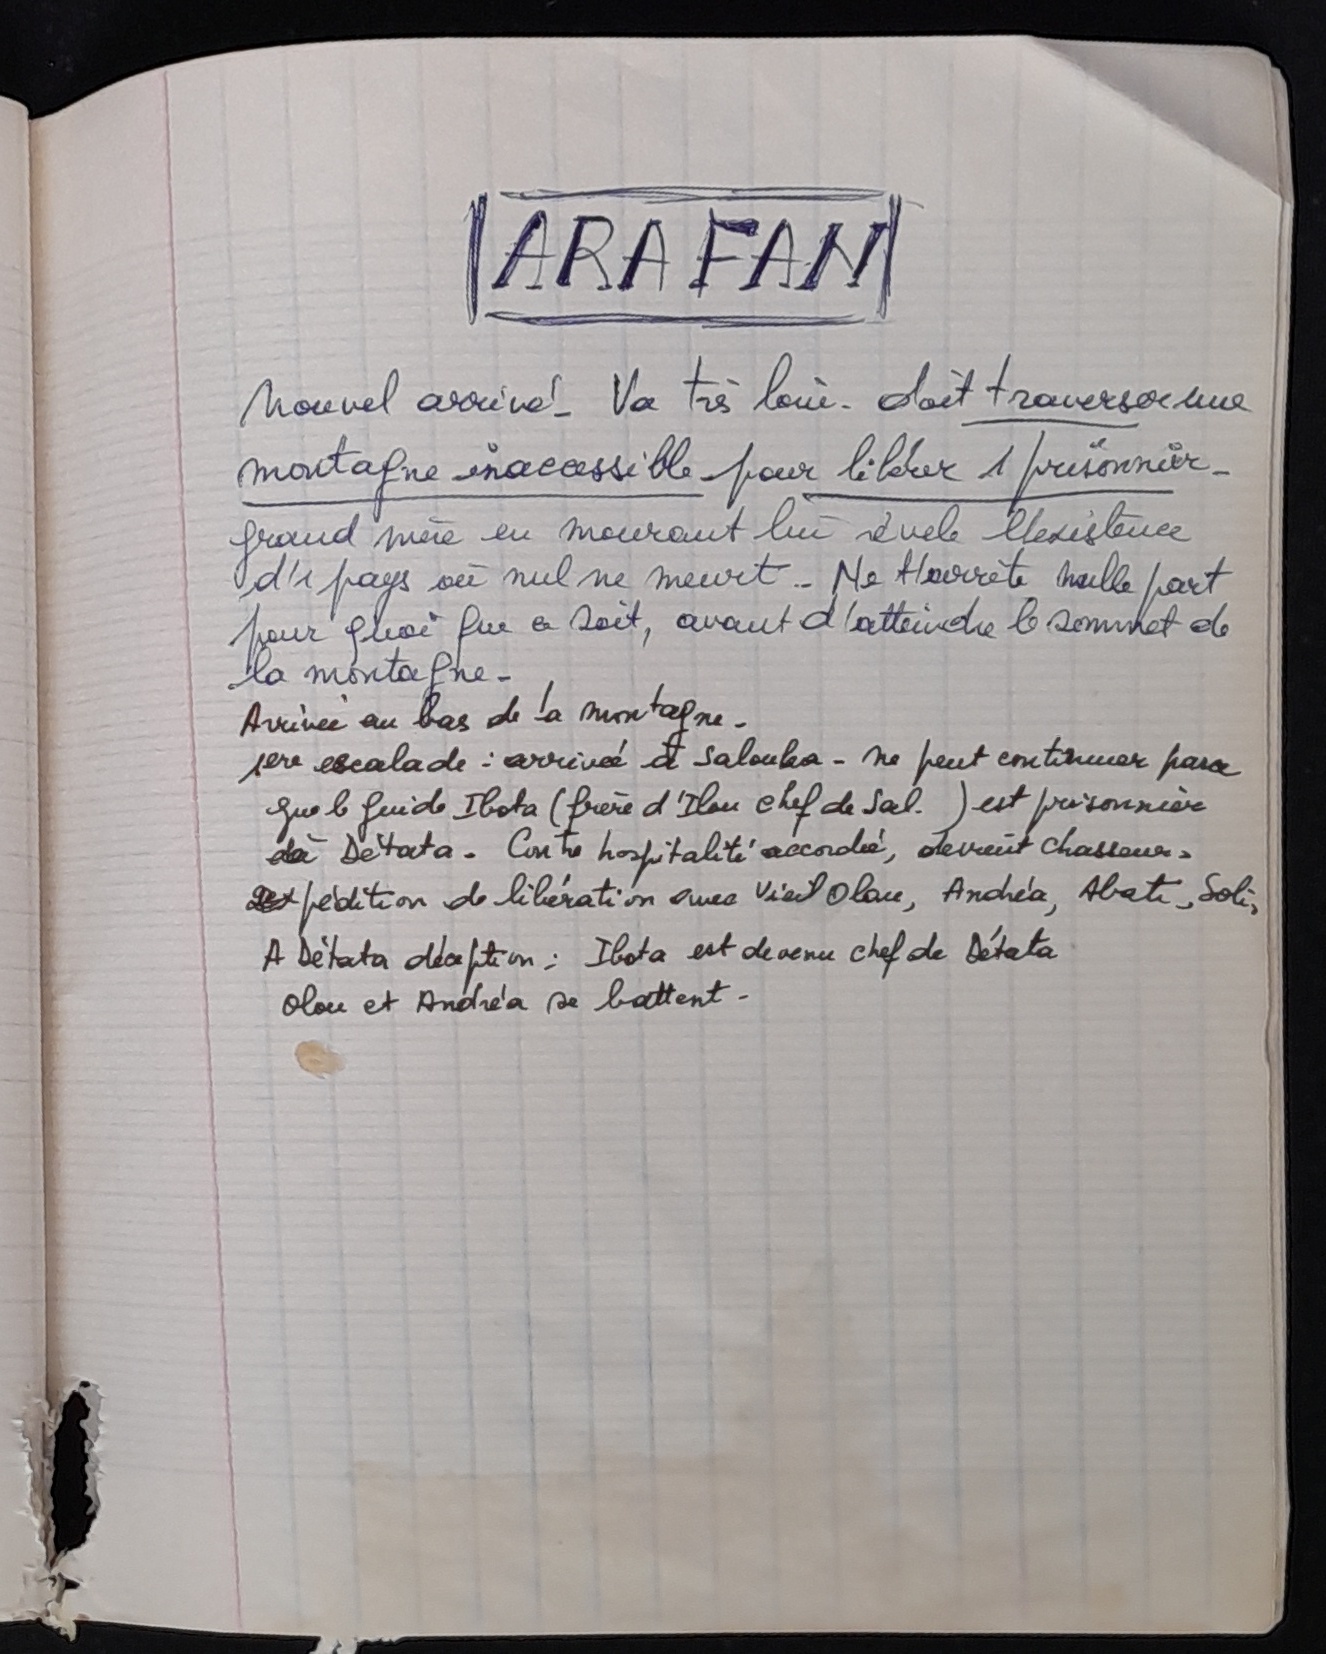 ARAFAN
Nouvel arrivé - Va très loin - doit traverser une
montagne inaccessible pour libérer 1 prisonnier -
grand mère en mourant lui révele l'existence
d'1 pays où nul ne meurt - Ne t'arrête nulle part
pour quoi que ce soit, avant d'atteindre le sommet de
la montagne -
Arrivée au bas de la montagne -
1ere escalade : arrivée à Salouka - ne peut continuer parce
que le guide Ibota (frère d'Ilou chef de Sal. ) est prisonnier
à Détata - Contre hospitalité accordée, devient chasseur -
expédition de libération avec vieil Olou, Andréa, Abati, Soli,
A Détata déception : Ibota est devenu chef de Détata
Olou et Andréa se battent -